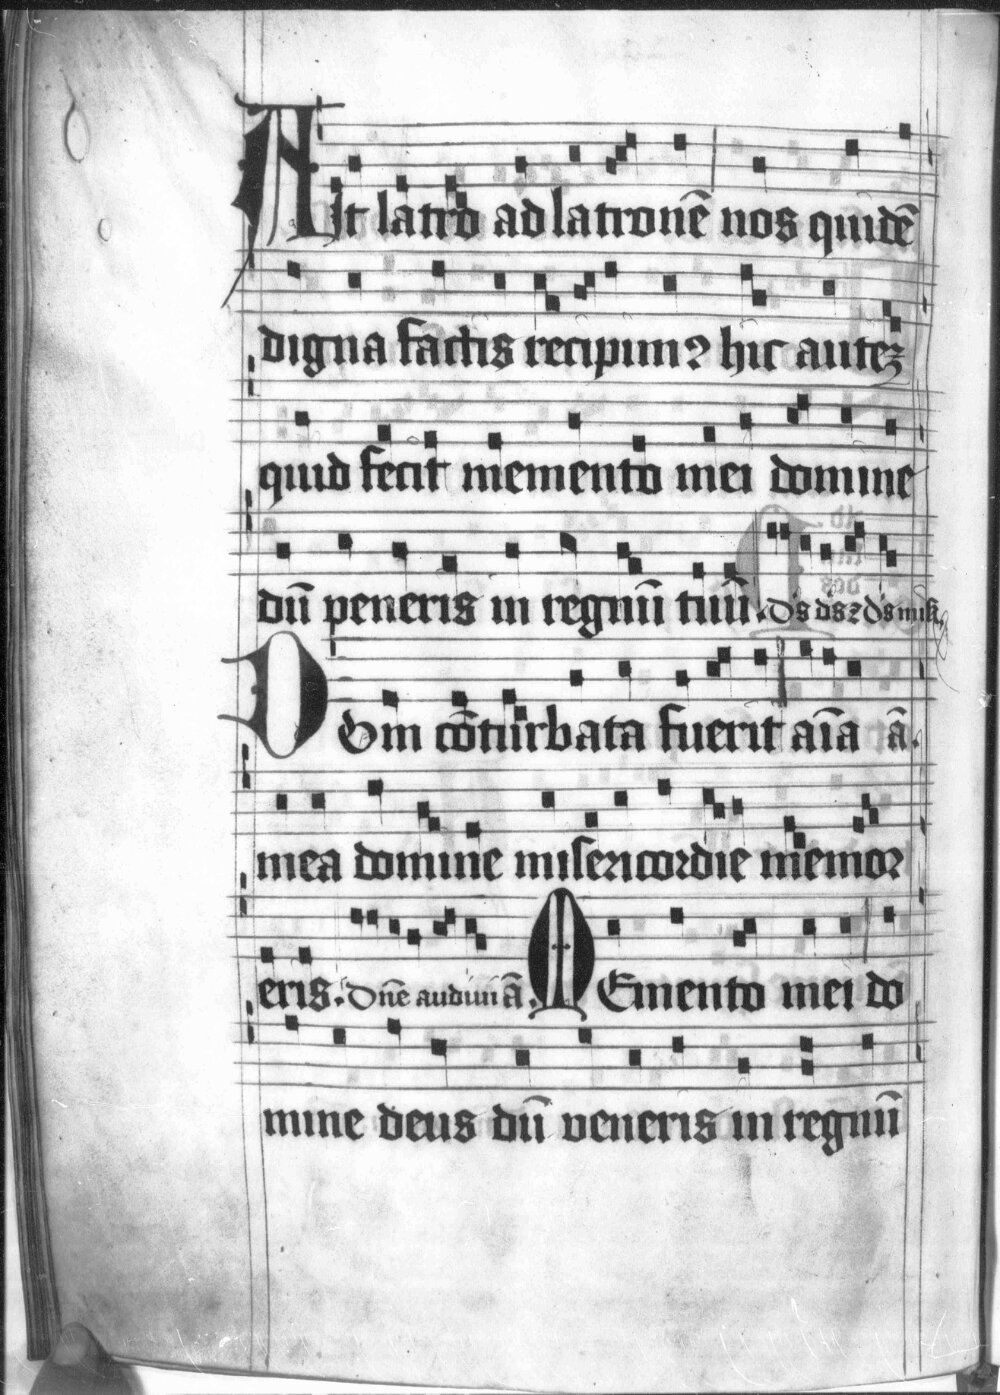 Ait latro ad latronē nos quidē
digna factis recipimꝰ hic auteꝫ
quid fecit memento mei domine
dū veneris in regnū tuū. Ds ds
Dum cōturbata fuerit aīa ā.
mea domine misericordie memor
eris. Dnē audiui ā. Memento mei do
mine deus dū veneris in regnū